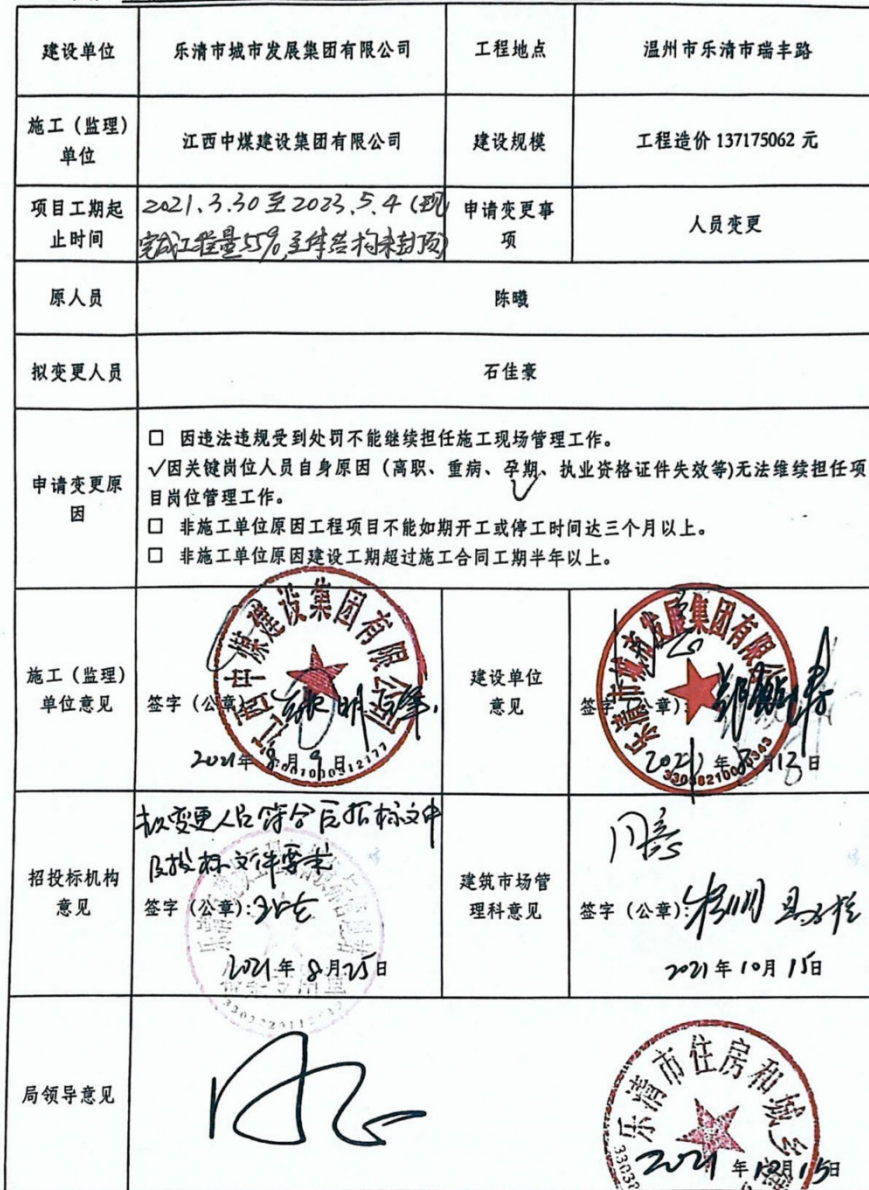 建设单位 乐清市城市发展集团有限公司 工程地点 温州市乐清市瑞丰路
施工（监理）
单位
江西中煤建设集团有限公司 建设规模 工程造价 137175062 元
项目工期起
止时间
2021.3.30 至 2023.5.4 (现
完成工程量55%,主体结构未封顶)
申请变更事
项
人员变更
原人员 陈曦
拟变更人员 石佳豪
申请变更原
因
□ 因违法违规受到处罚不能继续担任施工现场管理工作。
√因关键岗位人员自身原因（离职、重病、孕期、执业资格证件失效等)无法继续担任项
目岗位管理工作。
□ 非施工单位原因工程项目不能如期开工或停工时间达三个月以上。
□ 非施工单位原因建设工期超过施工合同工期半年以上。
施工（监理）
单位意见
江西中煤建设集团有限公司
签字（公章）
2021年8月9日
建设单位
意见
乐清市城市发展集团有限公司
签字（公章）:
2021年8月13日
招投标机构
意见
拟变更人员符合原招标文件
及投标文件要求
签字（公章）:
2021年8月25日
建筑市场管
理科意见
同意
签字（公章）:
2021年10月15日
局领导意见
乐清市住房和城乡建
2021年10月15日